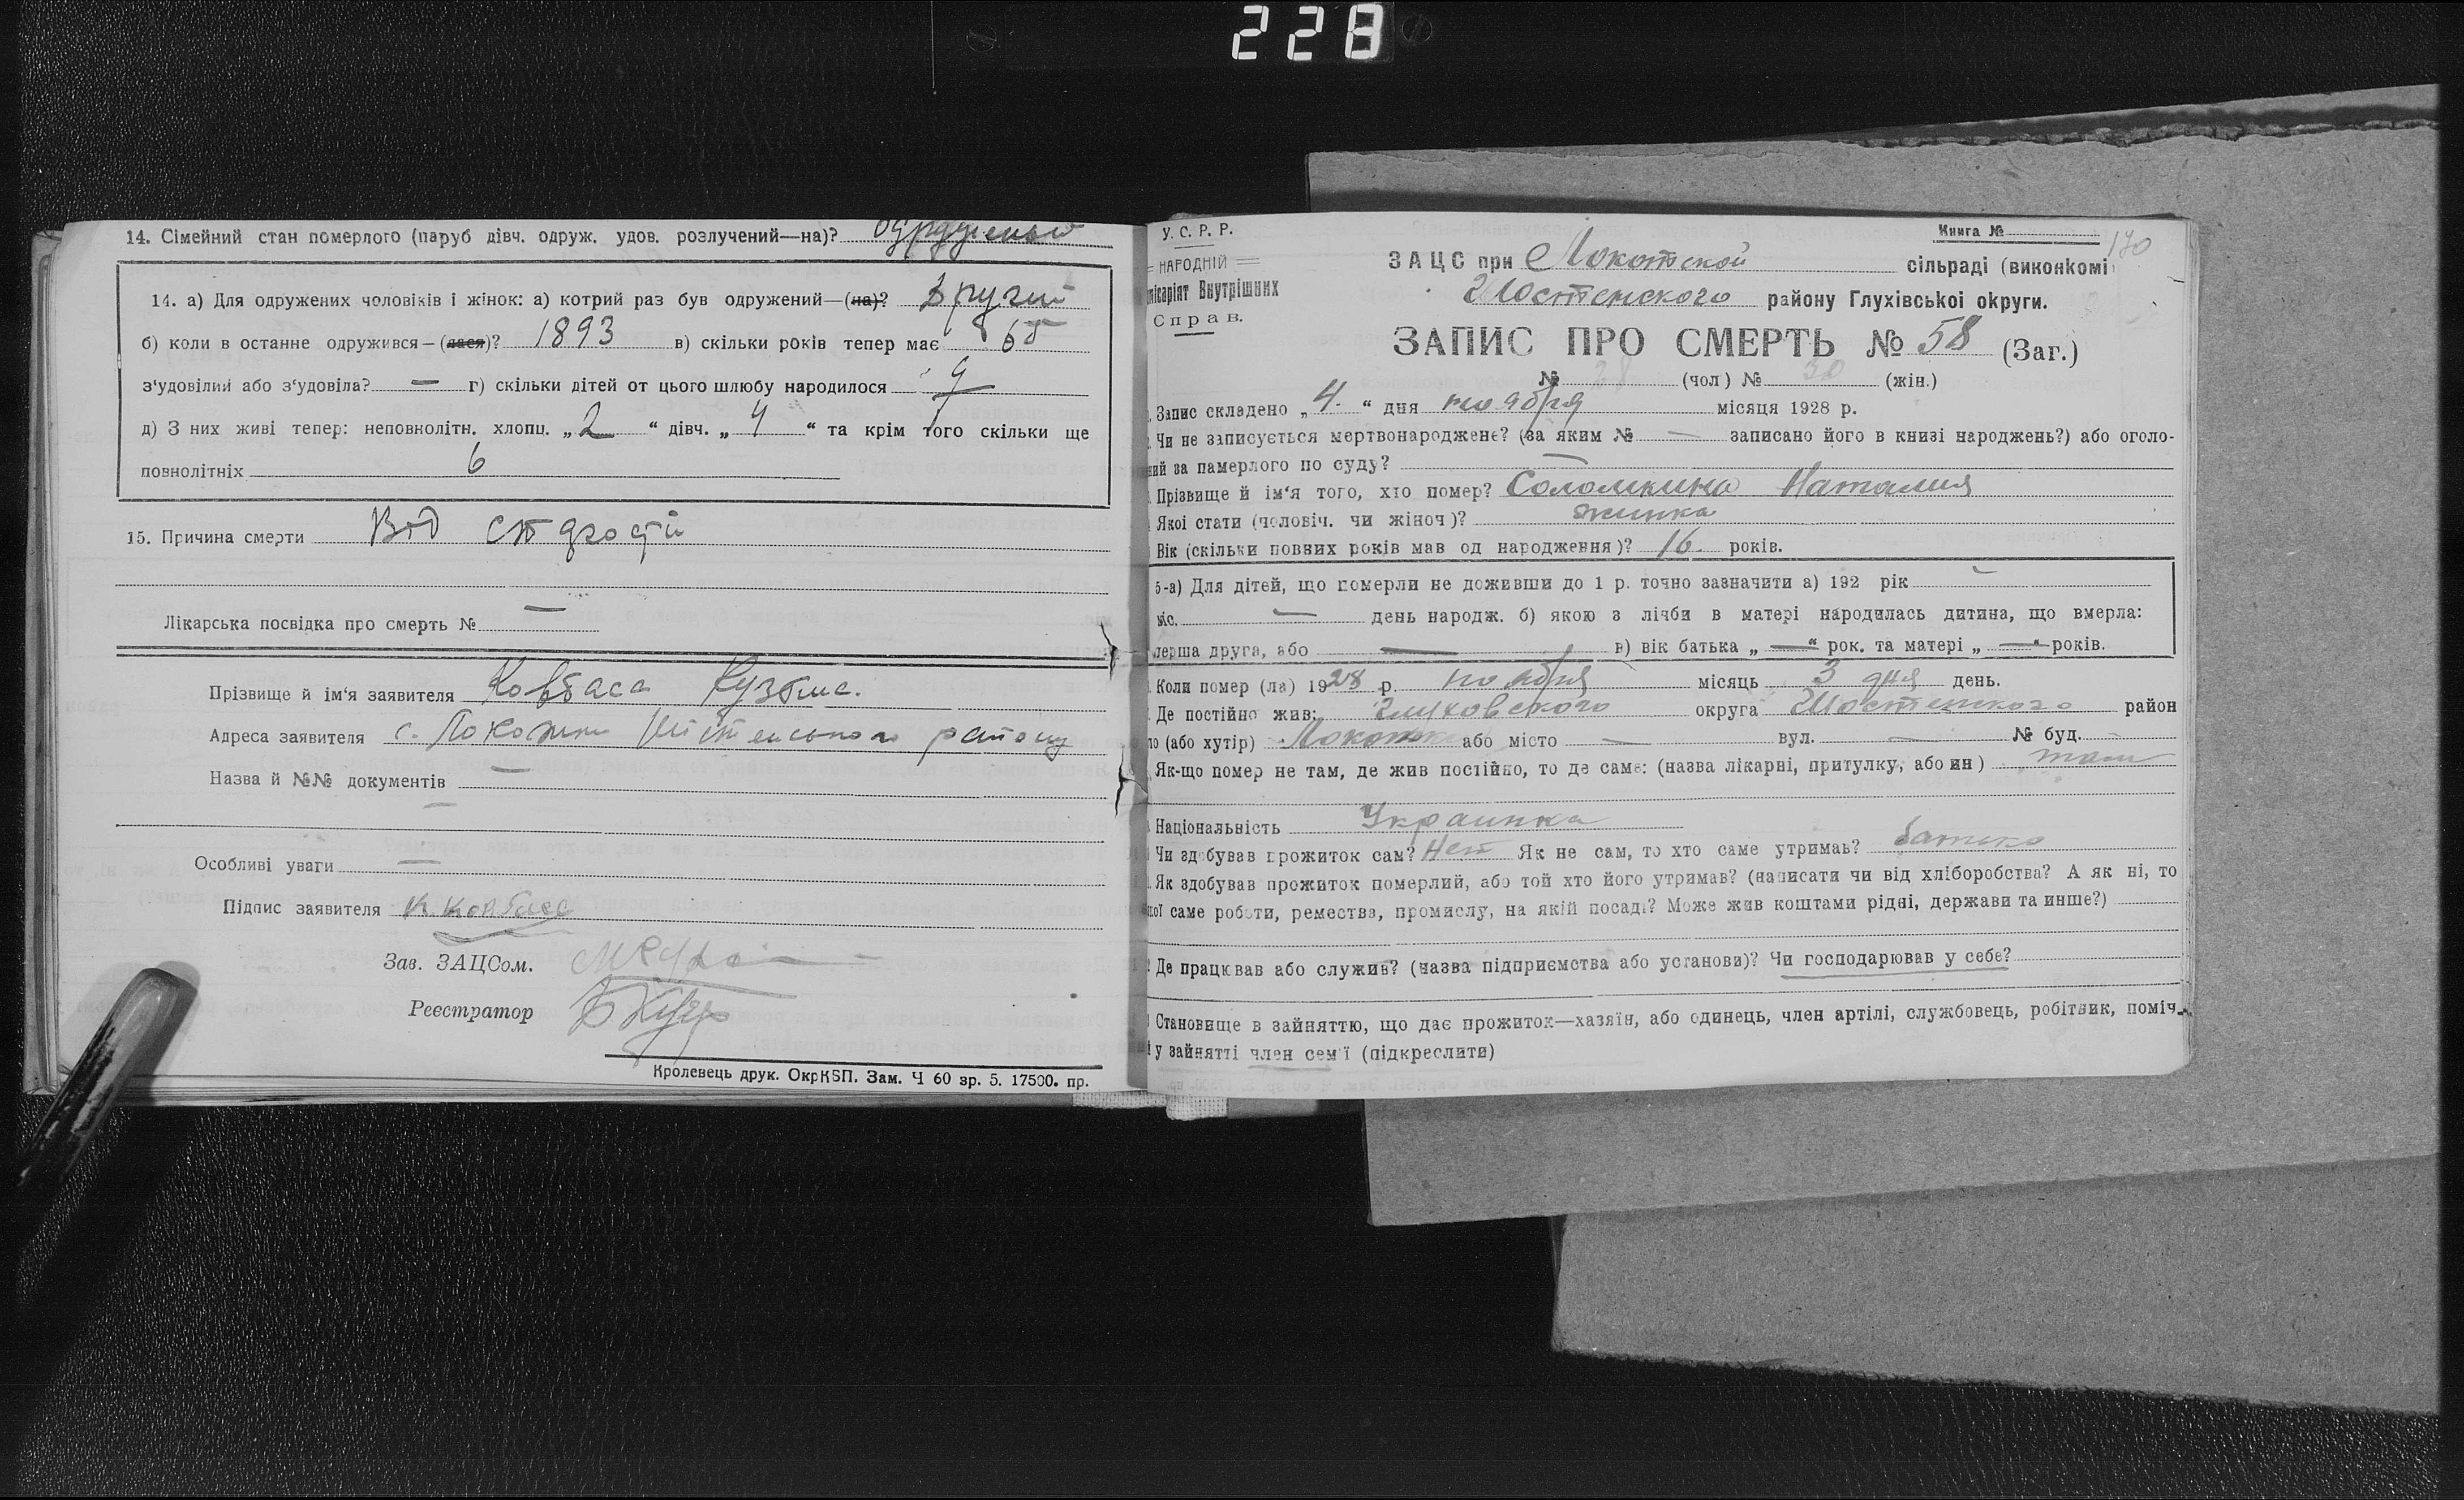 228
14. Сімейний стан померлого (паруб дівч. одруж. удов. розлучений—на)?
14. а) Для одружених чоловіків і жінок: а) котрий раз був одружений—(на)? Другий
б) коли в останне одружився—(лася)? 1893 в) скільки років тепер має 65
з'удовілий або з'удовіла? — г) скільки дітей от цього шлюбу народилося 9
д) З них живі тепер: неповнолітн. хлопц. „ 2 “ дівч. „ 4 “ та крім того скільки ще
повнолітніх 6
15. Причина смерти Від старости
Лікарська посвідка про смерть № —
Прізвище й ім'я заявителя Ковбаса Кузьма.
Адреса заявителя с. Локотки району
Назва й №№ документів —
Особливі уваги —
Підпис заявителя К. Ковбаса
Зав. ЗАЦСом.
Реєстратор
Кролевець друк. ОкрКВП. Зам. Ч 60 зр. 5. 17500. пр.
У. С. Р. Р.
НАРОДНІЙ
місаріят Внутрішних
Справ.
Книга №
170
ЗАЦС при Локотской сільраді (виконкомі
Шостенского району Глухівської округи.
ЗАПИС ПРО СМЕРТЬ № 58 (Заг.)
№ 28 (чол) № 30 (жін.)
Запис складено „ 4. “ дня ноября місяця 1928 р.
Чи не записується мертвонароджене? (за яким № — записано його в книзі народжень?) або оголо-
ний за памерлого по суду? —
Прізвище й ім'я того, хто помер? Соломкина Наталия
Якої стати (чоловіч. чи жіноч)? жинка
Вік (скільки повних років мав од народження)? 16. років.
5-а) Для дітей, що померли не доживши до 1 р. точно зазначити а) 192 рік —
міс. — день народж. б) якою з лічби в матері народилась дитина, що вмерла:
перша друга, або — в) вік батька „ — “ рок. та матері „ — “ років.
Коли помер (ла) 1928 р. ноября місяць 3 дня день.
Де постійно жив: Глуховского округа Шостенского район
ло (або хутір) Локотки або місто — вул. — № буд.
Як-що помер не там, де жив постійно, то де саме: (назва лікарні, притулку, або ин) там
Національність Украинка
Чи здобував прожиток сам? Нет Як не сам, то хто саме утримав? батько
Як здобував прожиток померлий, або той хто його утримав? (написати чи від хліборобства? А як ні, то
кої саме роботи, ремества, промислу, на якій посаді? Може жив коштами рідні, держави та инше?)
Де працював або служив? (назва підприємства або установи)? Чи господарював у себе?
Становище в зайняттю, що дає прожиток—хазяїн, або одинець, член артілі, службовець, робітник, поміч.
у зайнятті член сем'ї (підкреслити)